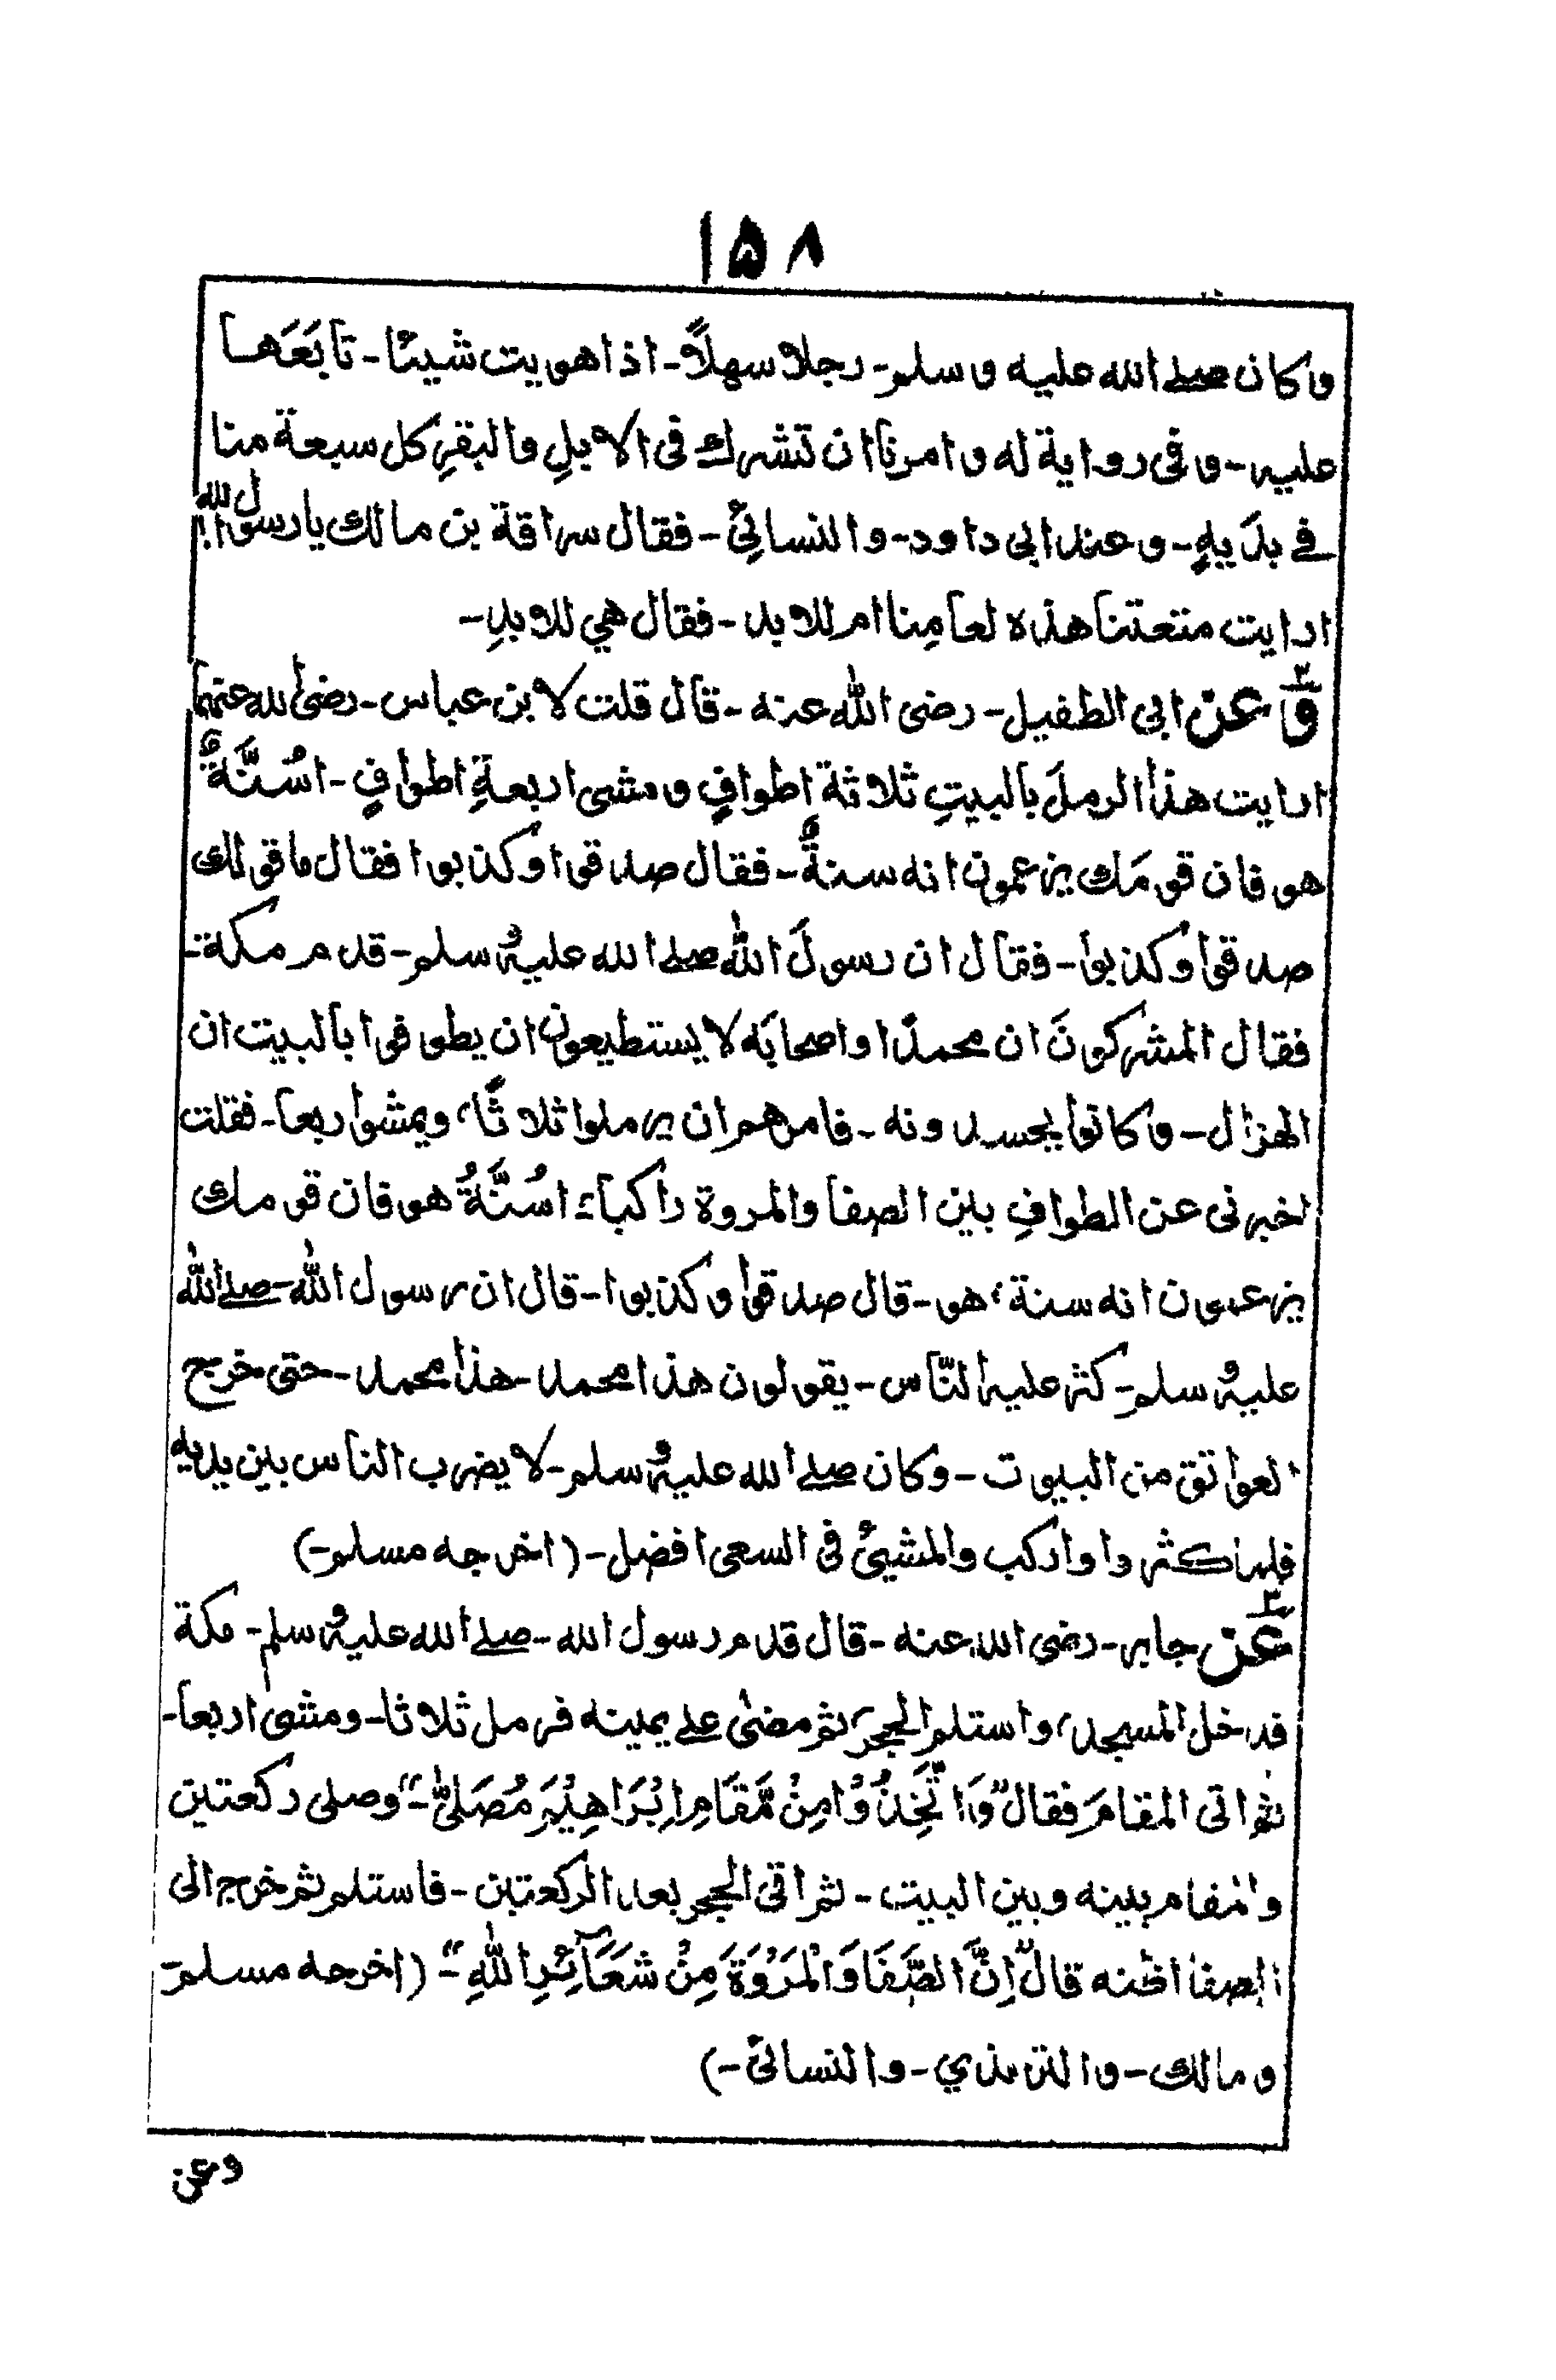 ١٥٨
وكان صلے الله عليه وسلم - رجلا سهلاً - اذا هويت شيئا - تابَعَها
عليه - و فى رواية له وامرنا ان نشرك فى الابلِ والبقرِ كل سبعة منا
فے بدَنِهٍ - وعند ابى داود - والنسائىْ - فقال سراقة بن مالك يا رسول الله!
ارايت متعتنا هذه لعامِنا ام للابد - فقال هي للابدِ -
وَعن ابى الطفيل - رضى الله عنه - قال قلت لابن عباس - رضى الله عنهما
ارايت هذا الرملَ بالبيتِ ثلاثة اطوافٍ ومشى اربعةِ اطوافٍ - اسُنَّةٌ
هو فان قومَك يزعمون انه سنةٌ - فقال صدقوا وكذبوا فقال ما قولك
صدقوا وكذبوا - فقال ان رسولَ الله صلے الله عليه وسلم - قدم مكة -
فقال المشركونَ ان محمدًا واصحابَه لا يستطيعون ان يطوفوا بالبيت ان
الهزال - وكانوا يحسدونه - فامرهم ان يرملوا ثلاثًا، ويمشوا ربعا - فقلت
اخبرنى عن الطوافِ بين الصفا والمروة راكبا - اسُنَّةُ هو فان قومك
يزعمون انه سنة، هو - قال صدقوا وكذبوا - قال ان رسول الله - صلے الله
عليه وسلم - كثر عليه النّاس - يقولون هذا محمد - هذا محمد - حتى خرج
العواتق من البيوت - وكان صلے الله عليه وسلم - لا يضرب الناس بين يديه
فلما كثر وا واركب والمشيىْ فى السعى افضل - (اخرجه مسلم -)
عن جابر - رضى الله عنه - قال قدم رسول الله - صلے الله عليه وسلم - مكة
فدخل المسجد، واستلم الحجر، ثم مضىٰ علے يمينه فرمل ثلاثا - ومشى اربعا -
ثم اتى المقامَ فقال "وَاتَّخِذُوْا مِنْ مَّقَامِ اِبْرَاهِيْمَ مُصَلىّٰ -" وصلى ركعتين
والمقام بينه وبين البيت - ثم اتى الحجر بعد الركعتين - فاستلم ثم خرج الى
الصفا اظنه قال "اِنَّ الصَّفَا وَالْمَرْوَةَ مِنْ شَعَآئِرِ اللّٰهِ -" (اخرجه مسلم -
ومالك - والترمذي - والنسائىْ -)
وعن